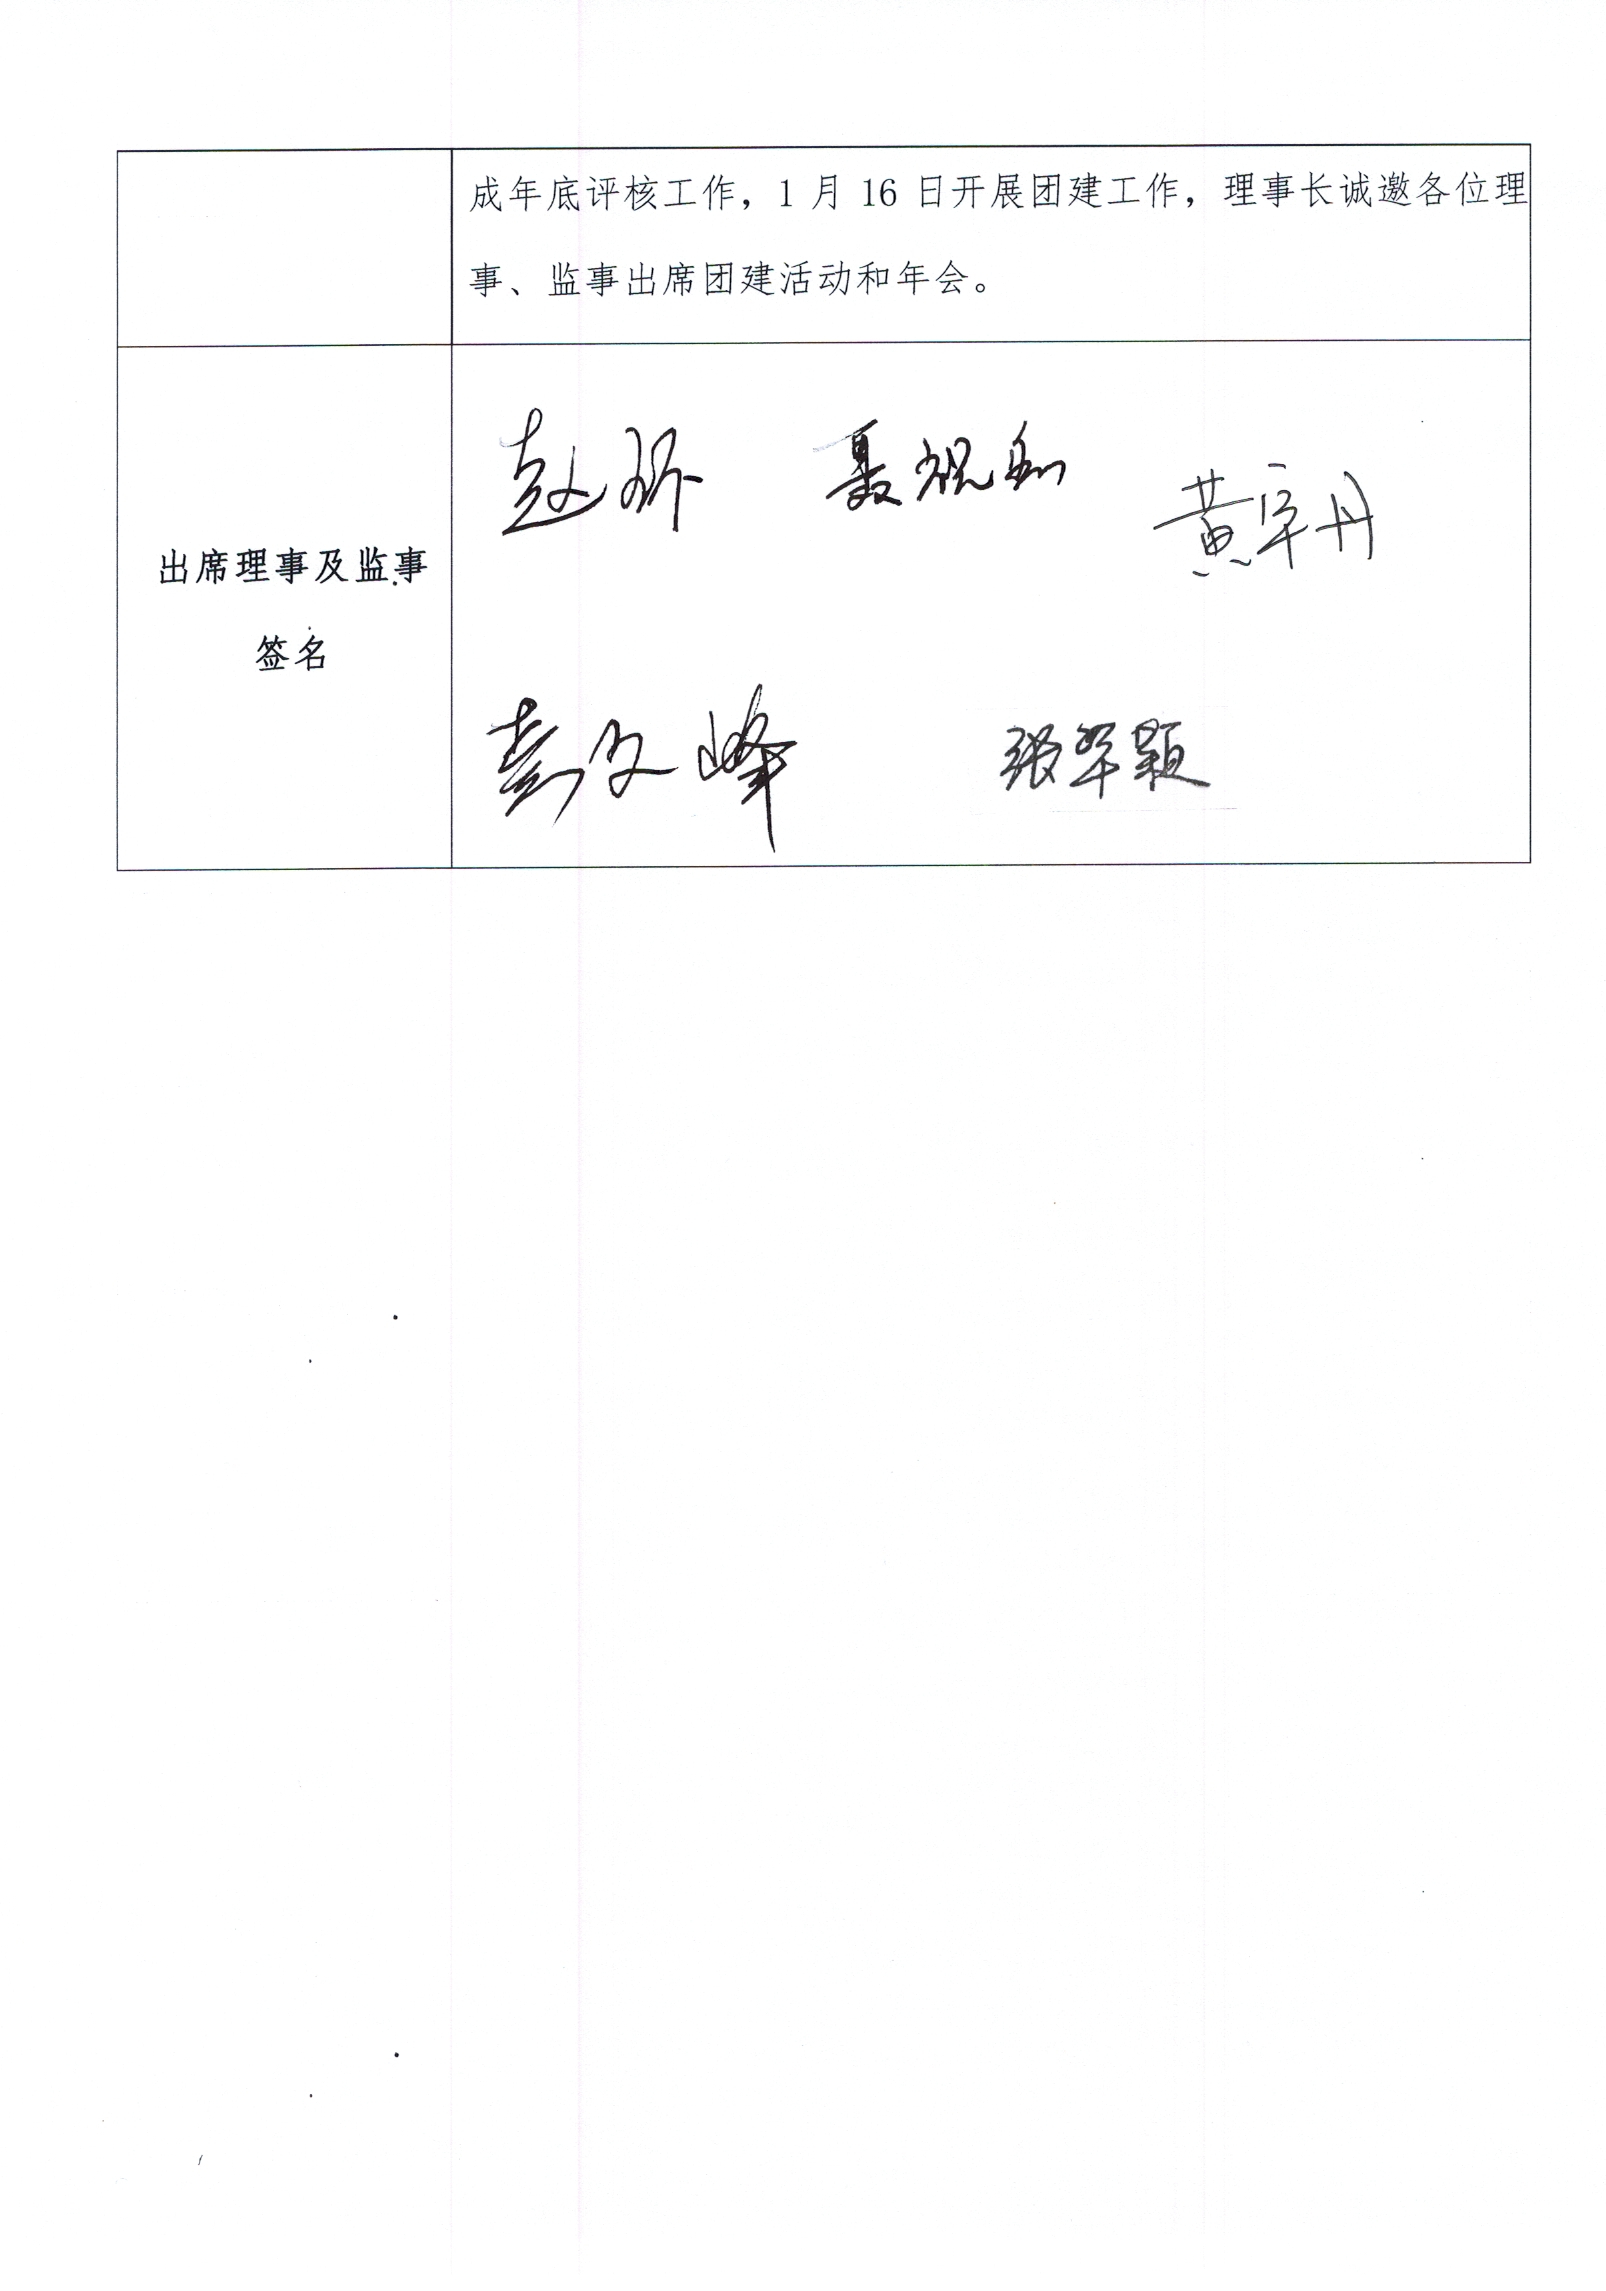 成年底评核工作，1 月 16 日开展团建工作，理事长诚邀各位理
事、监事出席团建活动和年会。
出席理事及监事
签名
赵
聂祝
黄宇丹
彭文峰
张军颖